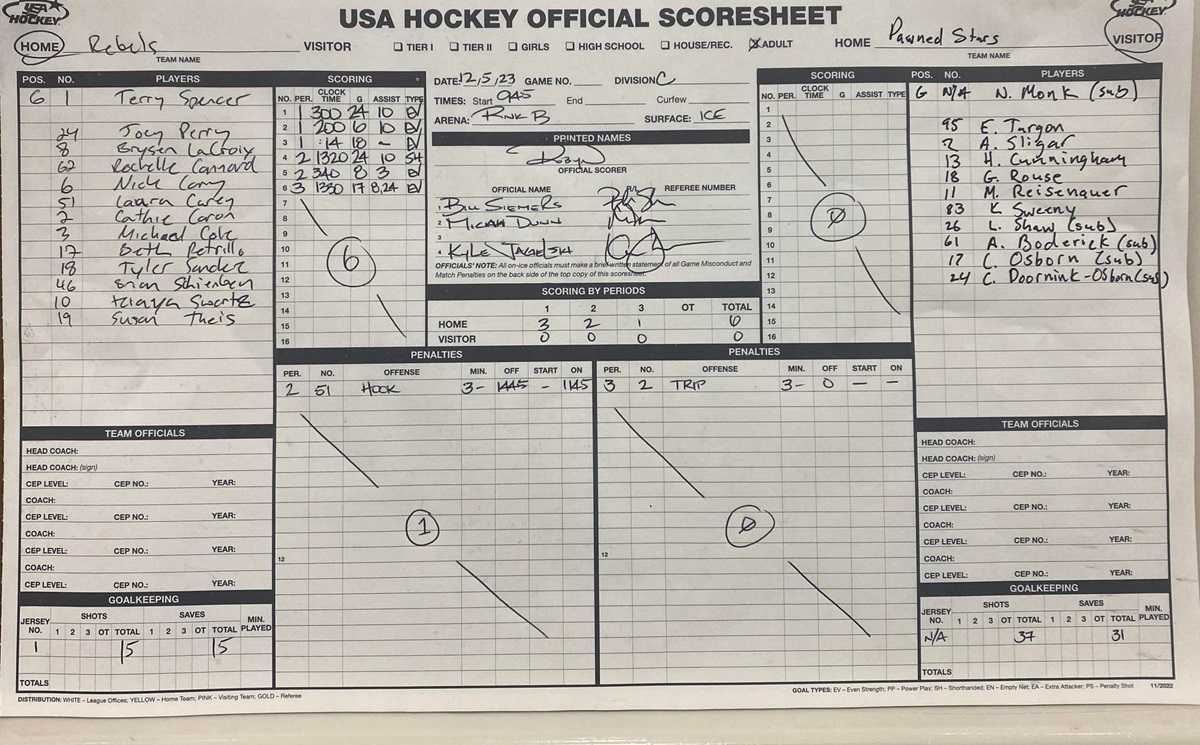 USA HOCKEY OFFICIAL SCORESHEET
USA HOCKEY
USA HOCKEY
HOME Rebels VISITOR
TEAM NAME
☐ TIER I ☐ TIER II ☐ GIRLS ☐ HIGH SCHOOL ☐ HOUSE/REC. ☒ ADULT
HOME Pawned Stars VISITOR
TEAM NAME
POS. NO. PLAYERS
G 1 Terry Spencer
24 Joey Perry
8 Brysen LaCroix
62 Rochelle Connard
6 Nick
51 Laura Carey
2 Cathie Caron
3 Michael Cole
17 Beth Petrillo
18 Tyler Sander
46 Brian
10 Swartz
19 Susan Theis
SCORING
NO. PER. CLOCK TIME G ASSIST TYPE
1 1 300 24 10 EV
2 1 200 6 10 EV
3 1 :14 18 - EV
4 2 1320 24 10 SH
5 2 340 8 3 EV
6 3 1350 17 8,24 EV
7
8
9
10
11
12
13
14
15
16
6
DATE: 12/5/23 GAME NO. DIVISION C
TIMES: Start 945 End Curfew
ARENA: Rink B SURFACE: ICE
PRINTED NAMES
Robyn
OFFICIAL SCORER
OFFICIAL NAME REFEREE NUMBER
1 Bill Siemers
2 Micah Dunn
3
4 Kyle
OFFICIALS' NOTE: All on-ice officials must make a brief written statement of all Game Misconduct and
Match Penalties on the back side of the top copy of this scoresheet.
SCORING BY PERIODS
1 2 3 OT TOTAL
HOME 3 2 1 6
VISITOR 0 0 0 0
SCORING
NO. PER. CLOCK TIME G ASSIST TYPE
1
2
3
4
5
6
7
8
9
10
11
12
13
14
15
16
0
POS. NO. PLAYERS
G N/A N. Monk (sub)
95 E. Targon
2 A. Sligar
13 H. Cunningham
18 G. Rouse
11 M. Reisenauer
83 K Sweeny
26 L. Shaw (sub)
61 A. Boderick (sub)
17 C. Osborn (sub)
24 C. Doornink-Osborn (sub)
PENALTIES
PER. NO. OFFENSE MIN. OFF START ON
2 51 HOOK 3- 1445 - 1145
1
12
PENALTIES
PER. NO. OFFENSE MIN. OFF START ON
3 2 TRIP 3- 0 — —
0
12
TEAM OFFICIALS
HEAD COACH:
HEAD COACH: (sign)
CEP LEVEL: CEP NO.: YEAR:
COACH:
CEP LEVEL: CEP NO.: YEAR:
COACH:
CEP LEVEL: CEP NO.: YEAR:
COACH:
CEP LEVEL: CEP NO.: YEAR:
GOALKEEPING
JERSEY NO. SHOTS 1 2 3 OT TOTAL SAVES 1 2 3 OT TOTAL MIN. PLAYED
1 15 15
TOTALS
TEAM OFFICIALS
HEAD COACH:
HEAD COACH: (sign)
CEP LEVEL: CEP NO.: YEAR:
COACH:
CEP LEVEL: CEP NO.: YEAR:
COACH:
CEP LEVEL: CEP NO.: YEAR:
COACH:
CEP LEVEL: CEP NO.: YEAR:
GOALKEEPING
JERSEY NO. SHOTS 1 2 3 OT TOTAL SAVES 1 2 3 OT TOTAL MIN. PLAYED
N/A 37 31
TOTALS
DISTRIBUTION: WHITE – League Offices; YELLOW – Home Team; PINK – Visiting Team; GOLD – Referee
GOAL TYPES: EV – Even Strength; PP – Power Play; SH – Shorthanded; EN – Empty Net; EA – Extra Attacker; PS – Penalty Shot 11/2022